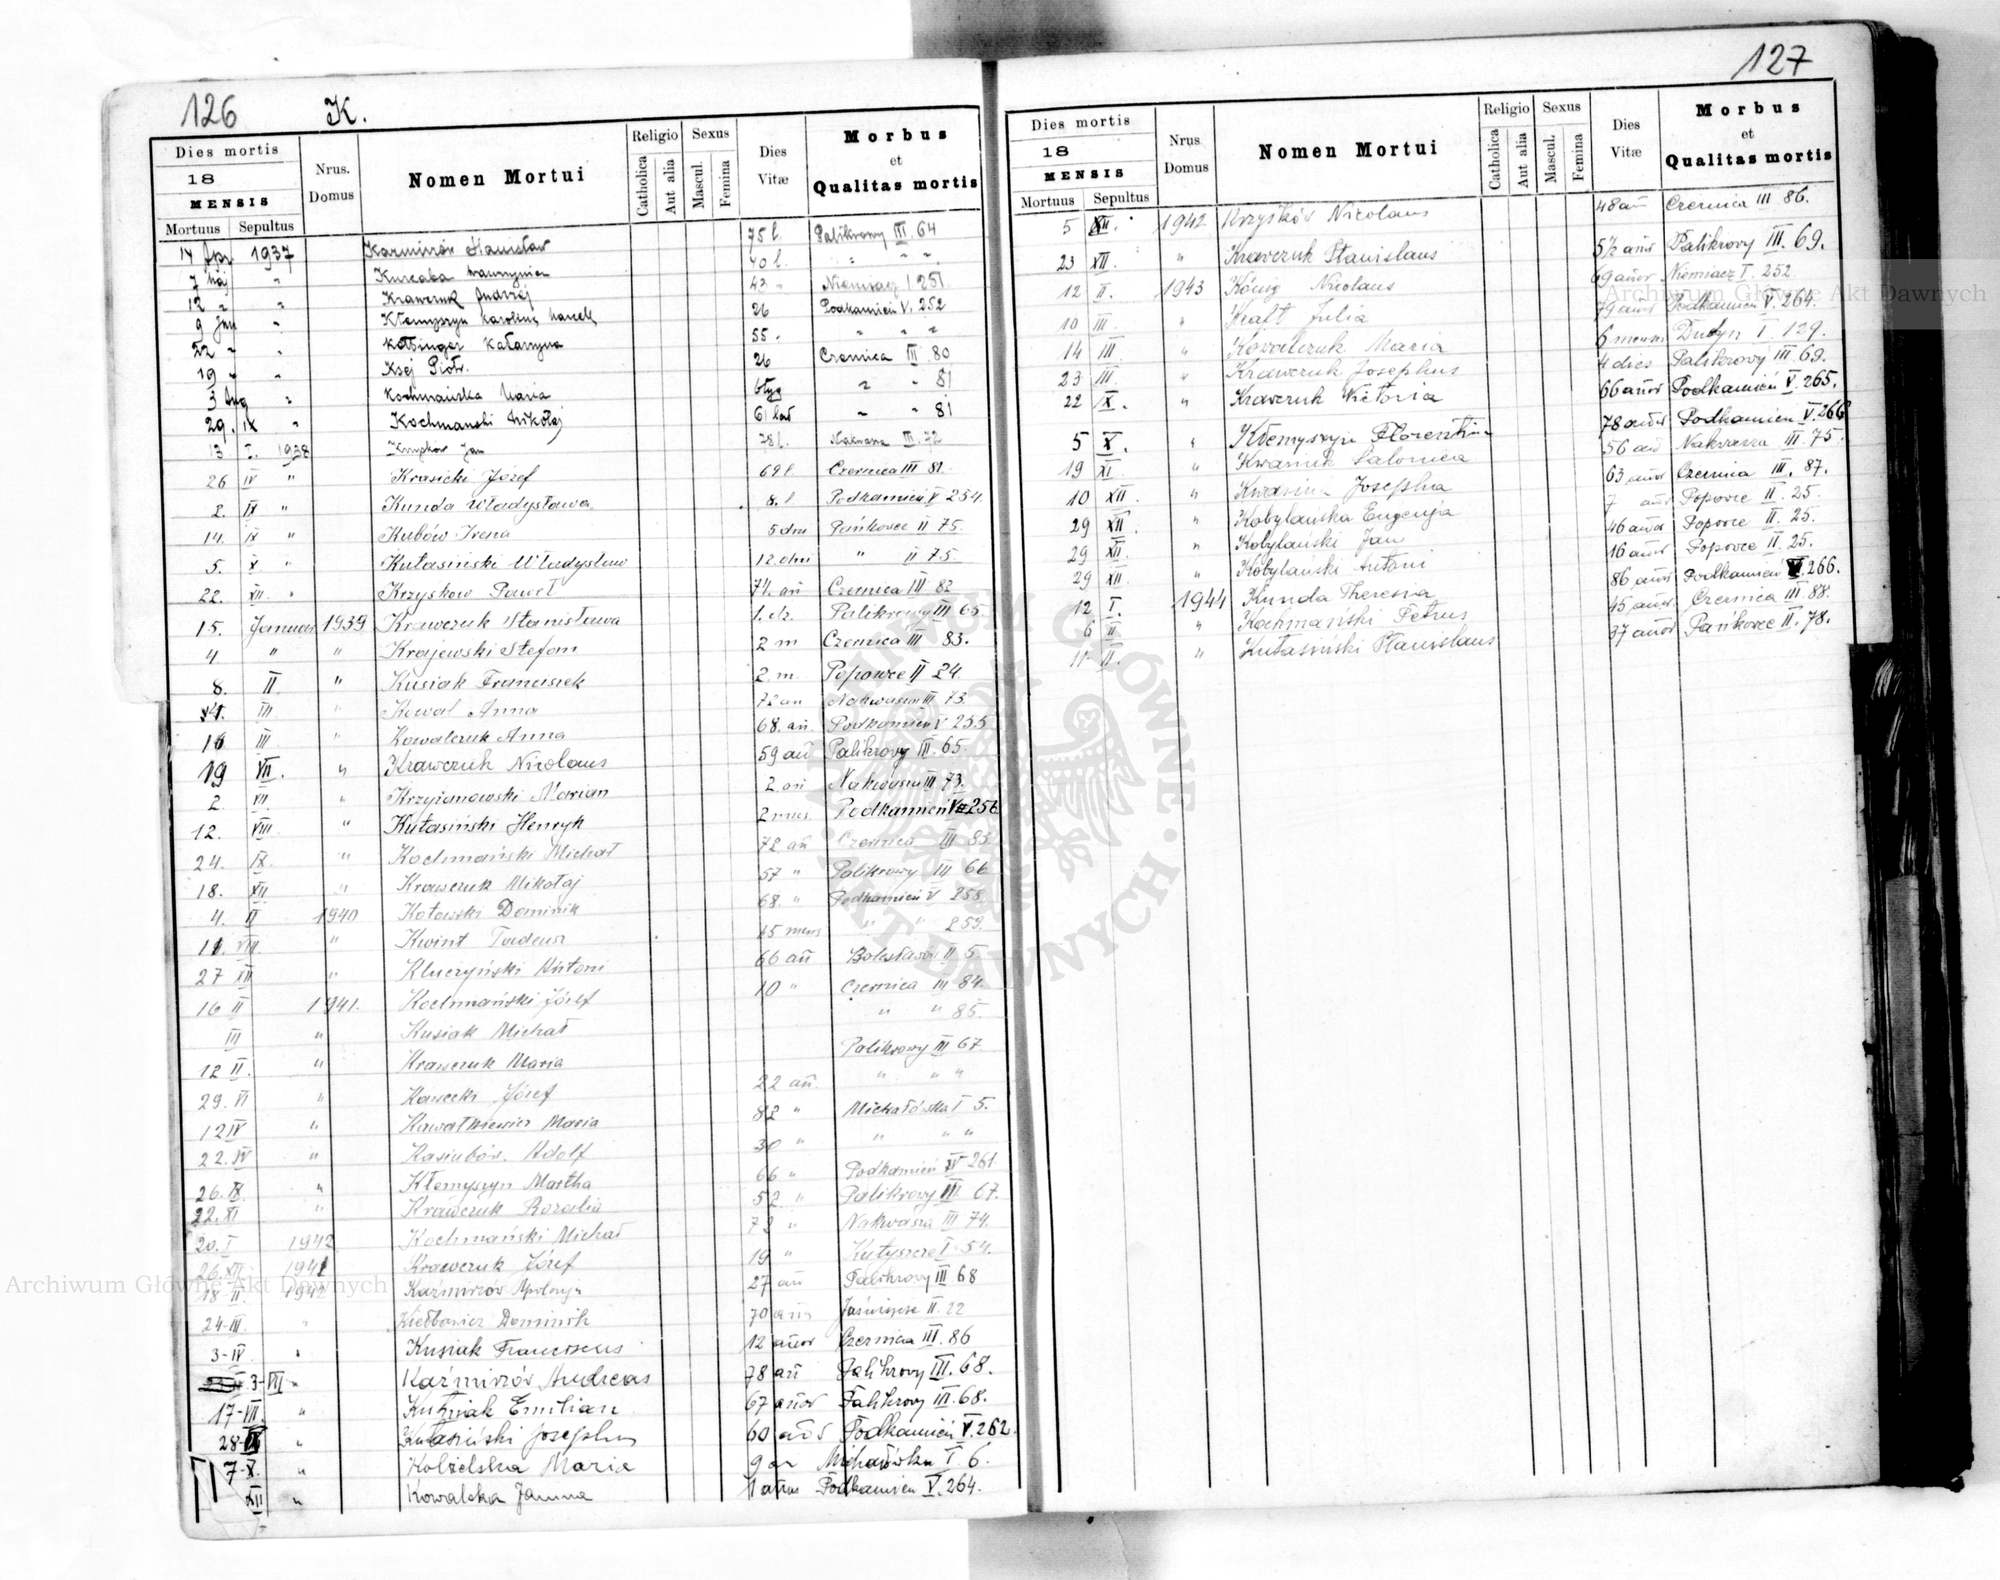 126 K.
Dies mortis
18
MENSIS
Mortuus Sepultus
Nrus. Domus
Nomen Mortui
Religio
Catholica Aut alia
Sexus
Mascul. Femina
Dies Vitæ
Morbus et Qualitas mortis
14 Apr 1937 Karmirów Stanisław 75 l. Palikrowy III. 64
7 Maj " Kurcaba 40 l. " " "
12 " " Krawczuk Andrzej 43 " Niemiacz I 251
9 Jun " Kłemyszyn Karolina 26 Podkamień V. 252
22 " " Katarzyna 55 " " " "
19 " " Ksej Piotr. 26 Czernica III 80
3 Aug " Kochmańska Maria " " 81
29. IX " Kochmański Mikołaj 61 lat " " 81
13 I. 1938 Jan 78 l. Nakwasza III. 72
26 IV " Krasicki Józef 69 l. Czernica III 81.
2. IX " Kunda Władysława 8. l Podkamień V 254.
14. IX " Kubów Irena 5 dni Pańkowce II 75.
5. X " Kutasiński Władysław 12 dni " II 75.
22. XII. " Krzyskow Paweł 74. an Czernica III 82
15. Januar 1939 Krawczuk Stanisława 1. dz. Palikrowy III 65
4 " " Krajewski Stefan 2 m Czernica III 83.
8. II " Kusiak Franciszek 2. m. Popowce II 24.
III " Kowal Anna 72 an Nakwasza III 73.
16 III " Kowalczuk Anna 68. an. Podkamień V 255
19 VII. " Krawczuk Nicolaus 59 an Palikrowy III. 65.
2 VII. " Krzyżanowski Marian 2. an Nakwasza III 73.
12. VIII " Kutasiński Henryk 2 mies. Podkamień V 256
24. IX " Kochmański Michał 72 an Czernica III 83
18. XII " Krawczuk Mikołaj 57 " Palikrowy III 66
4. II 1940 Kotowski Dominik 68. " Podkamień V 258
11. VIII " Kwint Tadeusz 15 mens " " 259.
27 XII " Kluczyński Antoni 66 an Bolesławów II 5.
16 II 1941. Kochmański Józef 10 " Czernica III 84.
III " Kusiak Michał " " 85.
12 II. " Krawczuk Maria Palikrowy III 67
29. VI " Kawecki Józef 22 an. " " "
12 IV " Kawałkiewicz Maria 82 " Michałówka I 5.
22. IV " Kasiubów. Adolf 30 " " " "
26. IX " Kłemyszyn Martha 66 " Podkamień IV 261.
22. XI " Krawczuk Rozalia 52 " Palikrowy III 67.
20. I 1942 Kochmański Michał 72 " Nakwasza III 74.
26. XII 1941 Krawczuk Józef 19 " Kutyszcze I 54.
18 II. 1942 Kaźmirów Apolonja 27 an Palikrowy III 68
24-III. " Kiełbowicz Dominik 70 Jaśniszcze II. 22
3-IV. " Kusiak Franciscus 12 annor Czernica III. 86
3-VII " Kaźmirzów Andreas 78 an Palikrowy III. 68.
17-VII. " Emilian 67 annor Palikrowy III. 68.
28- " Kutasiński Josephus 60 Podkamień V. 262.
7-X. " Kobielska Maria 9 an Michałówka I. 6.
XII " Kowalska Janina 1 annus Podkamień V. 264.
127
Dies mortis
18
MENSIS
Mortuus Sepultus
Nrus Domus
Nomen Mortui
Religio
Catholica Aut alia
Sexus
Mascul. Femina
Dies Vitæ
Morbus et Qualitas mortis
5 XII. 1942 Krzyśków Nicolaus 48 an Czernica III 86.
23 XII. " Krawczuk Stanislaus 5½ ann Palikrowy III. 69.
12 II. 1943 König Nicolaus 69 annor Niemiacz I. 252
10 III. " Kraft Julia 79 annor Podkamień V. 264.
14 III " Kowalczuk Maria 6 menses Dudyn I. 129.
23 III. " Krawczuk Josephus 4 dies Palikrowy III. 69.
22 IX. " Krawczuk Victoria 66 annor Podkamień V. 265.
5 X. " Kłemyszyn Florentina 78 annor Podkamień V. 266
19 XI. " Kwaśniuk Salomea 56 an Nakwasza III. 75.
10 XII. " Josepha 63 annor Czernica III. 87.
29 XII. " Kobylańska Eugenja 7 ann Popowce II. 25.
29 XII. " Kobylański Jan 46 annor Popowce II. 25.
29 XII. " Kobylański Antoni 16 annor Popowce II. 25.
12 I. 1944 Kunda Theresia 86 annor Podkamień V. 266.
6 II " Kochmański Petrus 45 annor Czernica III. 88.
11-II. " Kutasiński Stanislaus 37 annor Pańkowce II. 78.
Archiwum Główne Akt Dawnych
Archiwum Główne Akt Dawnych
ARCHIWUM GŁÓWNE AKT DAWNYCH